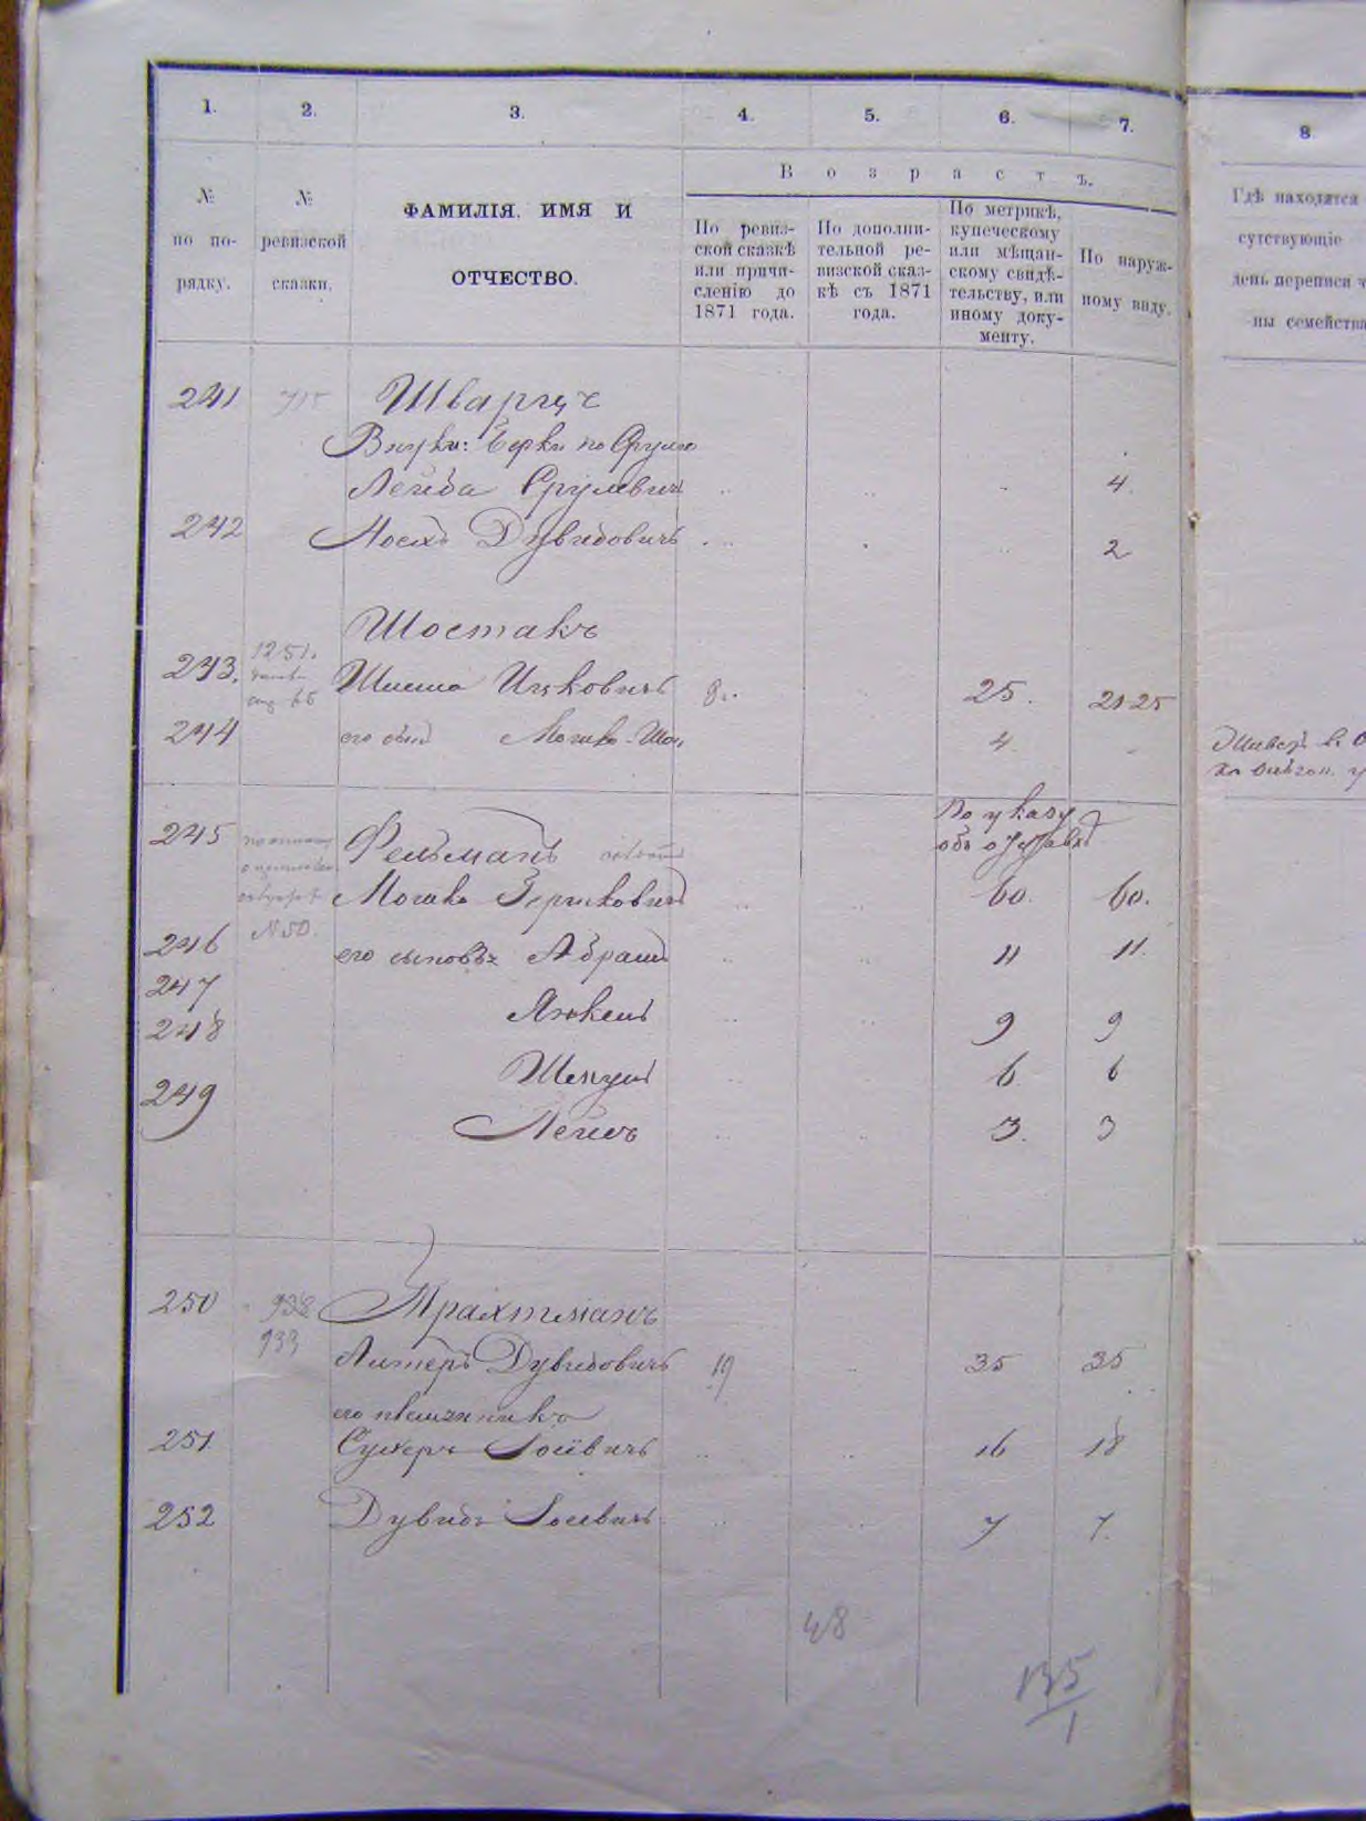 1. 2. 3. 4. 5. 6. 7. 8
В о з р а с т ъ.
№ по по-рядку.
№ ревизской сказки.
ФАМИЛІЯ, ИМЯ И
ОТЧЕСТВО.
По ревиз-
ской сказкѣ
или причи-
сленію до
1871 года.
По дополни-
тельной ре-
визской сказ-
кѣ съ 1871
года.
По метрикѣ,
купеческому
или мѣщан-
скому свидѣ-
тельству, или
иному доку-
менту.
По наруж-
ному виду.
Гдѣ находятся
сутствующіе
день переписи ч
ны семейства
241 715 Шварцъ
Внуки: Берки по Срулю
Лейба Срулевичъ 4.
242 Мосхъ Дувидовичъ 2
Шостакъ
243. 1251. Ицковичъ 8. 25. 21 25
244 его сынъ Мошко 4
245 Фельманъ По указу
Мошко 60. 60.
№ 50.
246 его сыновья Абрамъ 11 11.
247
248 Янкель 9 9
Шепсул 6 6
249
Лейбъ 3. 3
250 938 Трахтманъ
933
Литеръ Дувидовичъ 19 35 35
его племянникъ
251. Сухеръ Іосевичъ 16 18
252 Дувидъ Іосевичъ 7 7.
48
135
1